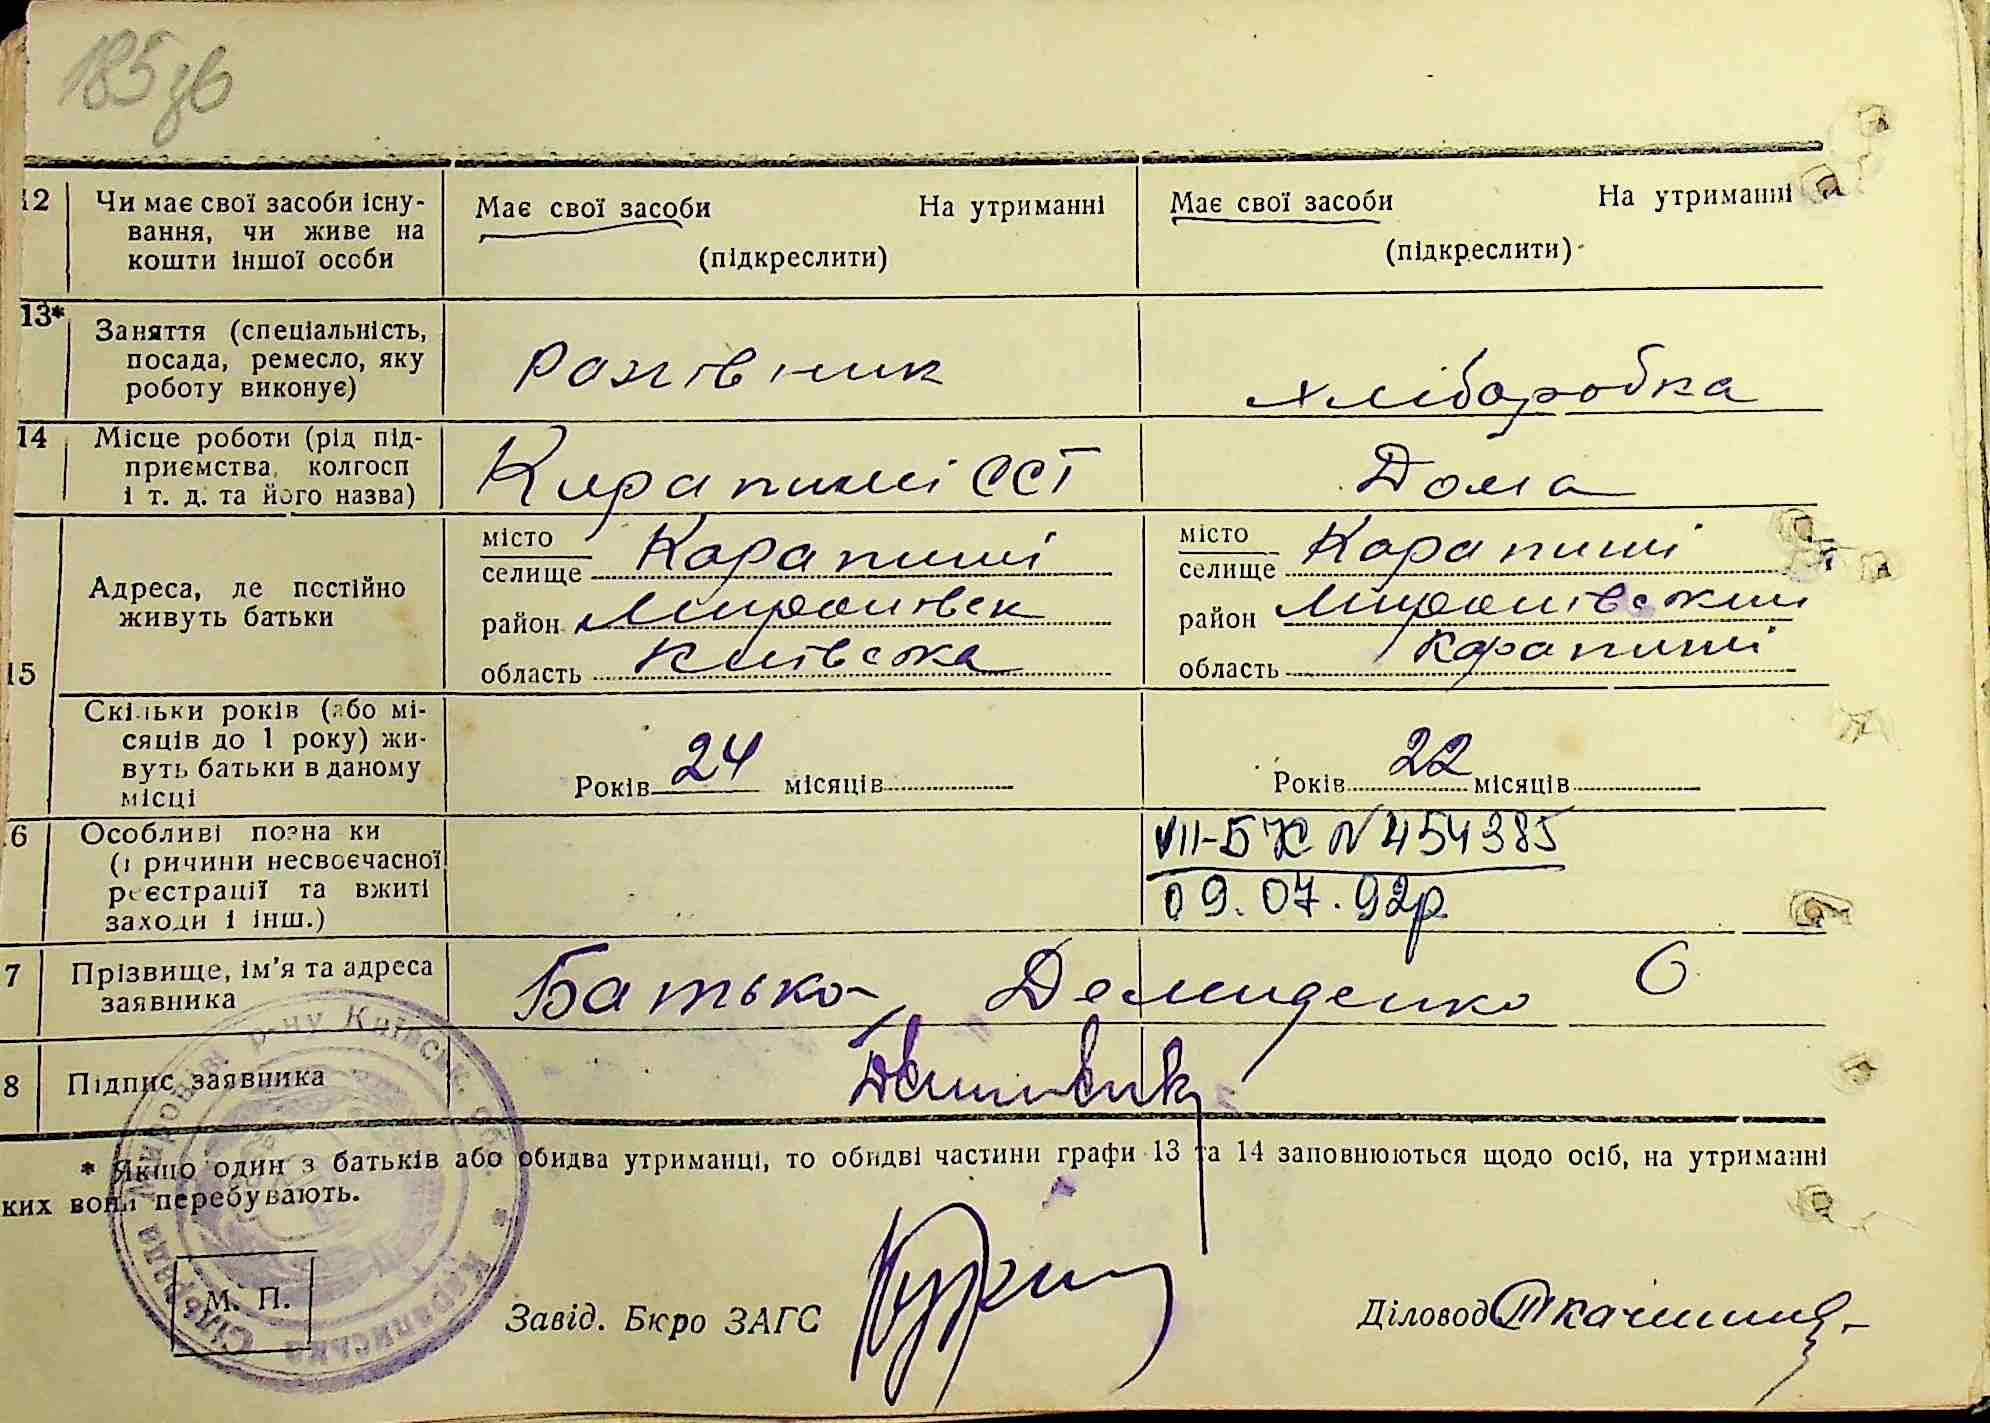 185 зв
12 Чи має свої засоби існу-
вання, чи живе на
кошти іншої особи
Має свої засоби На утриманні
(підкреслити)
Має свої засоби На утриманні
(підкреслити)
13* Заняття (спеціальність,
посада, ремесло, яку
роботу виконує)
хліборобка
14 Місце роботи (рід під-
приємства, колгосп
і т. д. та його назва)
Карапиші ССТ
Дома
15 Адреса, де постійно
живуть батьки
місто
селище Карапиші
район Миронівск
область Київська
місто
селище Карапиші
район Миронівский
область Карапиші
Скільки років (або мі-
сяців до 1 року) жи-
вуть батьки в даному
місці
Років 24 місяців
Років 22 місяців
6 Особливі позна ки
(причини несвоєчасної
реєстрації та вжиті
заходи і інш.)
VII-БК N 454385
09.07.92р
7 Прізвище, ім'я та адреса
заявника
Батько, Демиденко С
8 Підпис заявника
* Якщо один з батьків або обидва утриманці, то обидві частини графи 13 та 14 заповнюються щодо осіб, на утриманні
ких вони перебувають.
М. П.
Завід. Бюро ЗАГС
Діловод